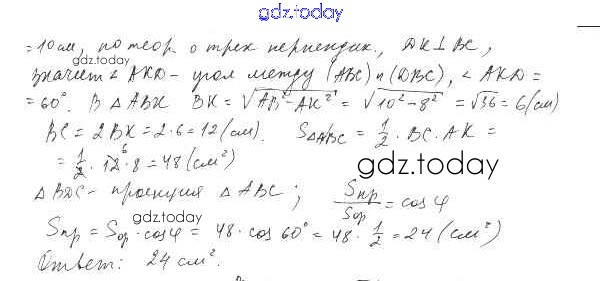 gdz.today
= 10 см, по теор. о трех перпендик., DK ⊥ BC,
gdz.today
значит ∠ AKD - угол между (ABC) и (DBC), ∠ AKD =
= 60°. В △ ABK BK = √AB² - AK² = √10² - 8² = √36 = 6 (см)
BC = 2BK = 2·6 = 12 (см). S△ABC = 1/2 · BC · AK =
= 1/2 · 12 · 8 = 48 (см²)
gdz.today
△ BDC - проекция △ ABC; Sпр/Sор = cos φ
gdz.today
Sпр = Sор · cos φ = 48 · cos 60° = 48 · 1/2 = 24 (см²)
Ответ: 24 см².
gdz.today